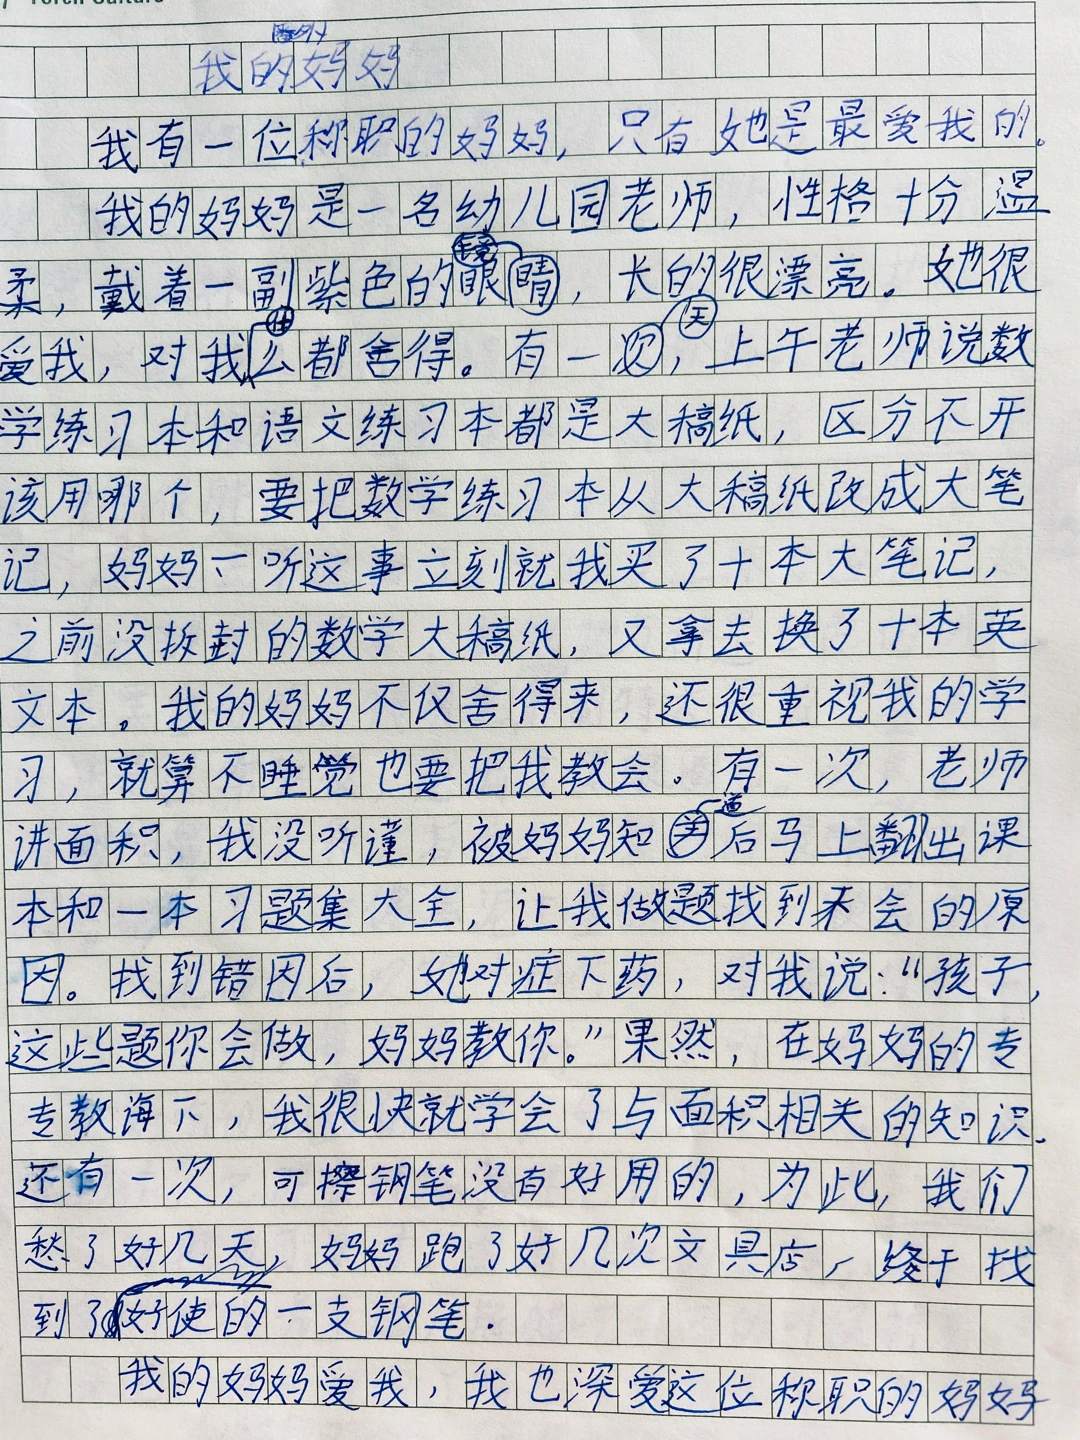 我的妈妈
我有一位称职的妈妈，只有她是最爱我的。
我的妈妈是一名幼儿园老师，性格十分温
柔，戴着一副紫色的眼镜，长的很漂亮。她很
爱我，对我什么都舍得。有一天，上午老师说数
学练习本和语文练习本都是大稿纸，区分不开
该用哪个，要把数学练习本从大稿纸改成大笔
记，妈妈一听这事立刻就我买了十本大笔记，
之前没拆封的数学大稿纸，又拿去换了十本英
文本。我的妈妈不仅舍得来，还很重视我的学
习，就算不睡觉也要把我教会。有一次，老师
讲面积，我没听谨，被妈妈知道后马上翻出课
本和一本习题集大全，让我做题找到未会的原
因。找到错因后，她对症下药，对我说：“孩子，
这些题你会做，妈妈教你。”果然，在妈妈的专
专教诲下，我很快就学会了与面积相关的知识。
还有一次，可擦钢笔没有好用的，为此，我们
愁了好几天，妈妈跑了好几次文具店，终于找
到了好使的一支钢笔.
我的妈妈爱我，我也深爱这位称职的妈妈